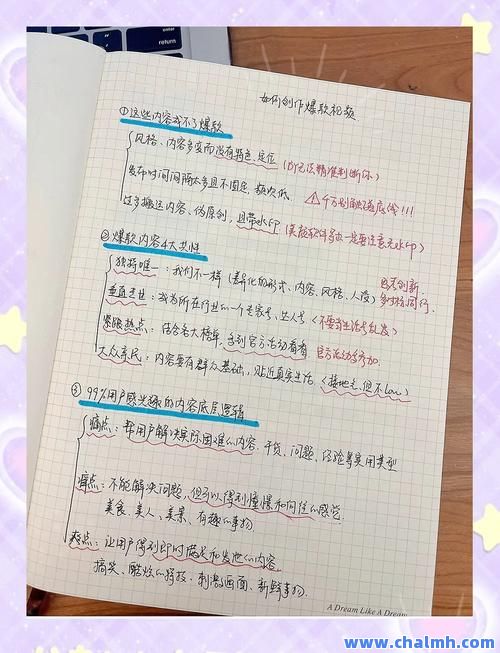 return
如何创作爆款视频
①这些内容成不了爆款
风格、内容多变而没有特色、定位 (dy无法精准判断你)
发布时间间隔太多且不固定,频次低 ⚠千万别触碰底线!!!
过多搬运内容、伪原创,且带水印 (美 软件导出一定要注意无水印)
②爆款内容4大共性
独特唯一:我们不一样(差异化的形式、内容、风格、人设)
多创新
多对标同行。
垂直专业:成为所在行业的一个专家号、达人号<不要当生活号乱发>
紧跟热点:结合各大榜单、多到官方活动看看 官方活动多参加
大众亲民:内容要有群众基础,贴近真实生活<接地气但不low>
③99%用户感兴趣的内容底层逻辑
痛点:帮用户解决实际困难的内容,干货、问题、经验等实用类型
痒点:不能解决问题,但可以得到憧憬和向往的感觉.
美食、美人、美景、有趣的事物
爽点:让用户得到即时满足和发泄的内容.
搞笑、酷炫的特技、刺激画面、新鲜事物.
A Dream Like A Dream
www.chalmh.com